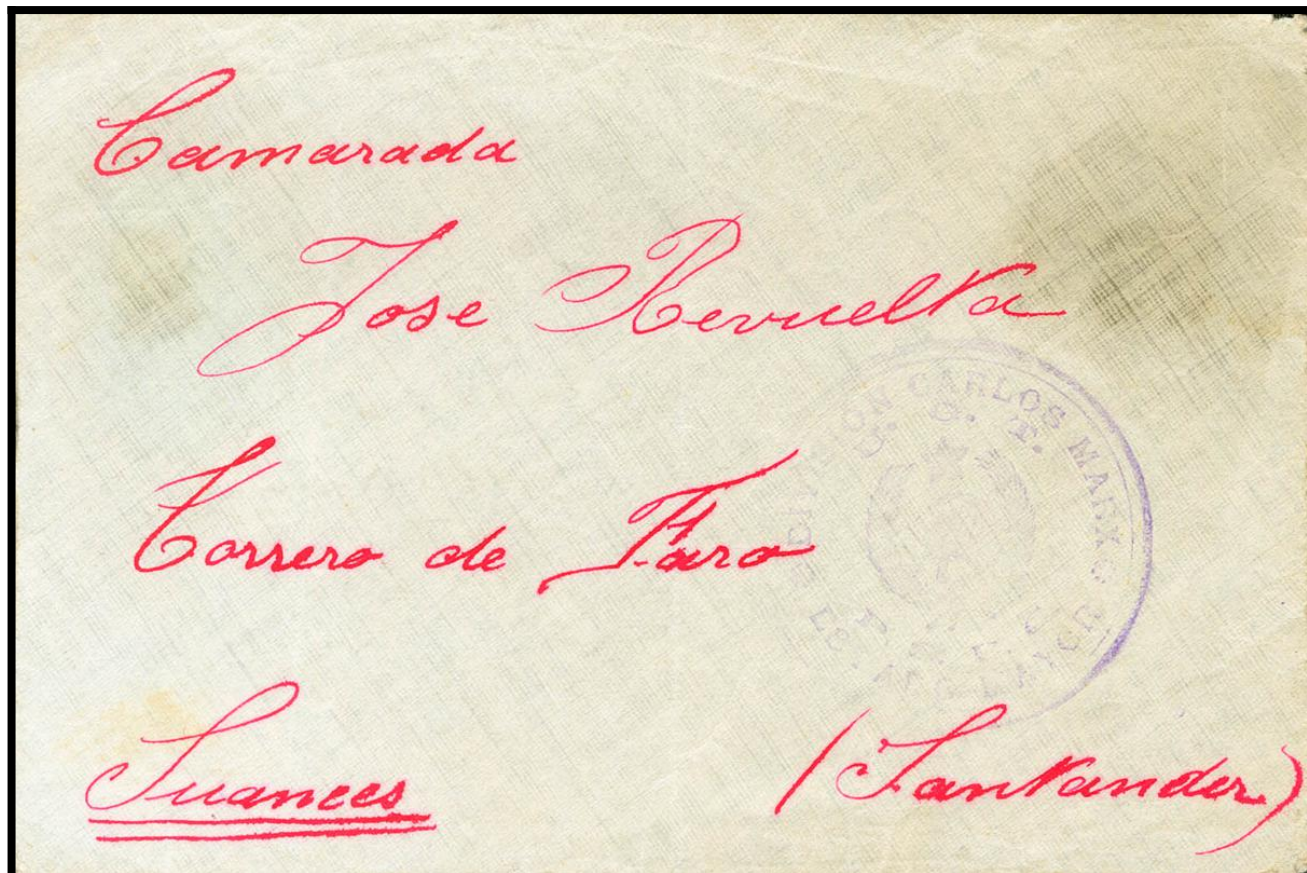 Camarada
Jose Revuelta
Torrero de Faro
Suances
(Santander)
DIVISION CARLOS MARX
U. G. T.
ESTADO MAYOR